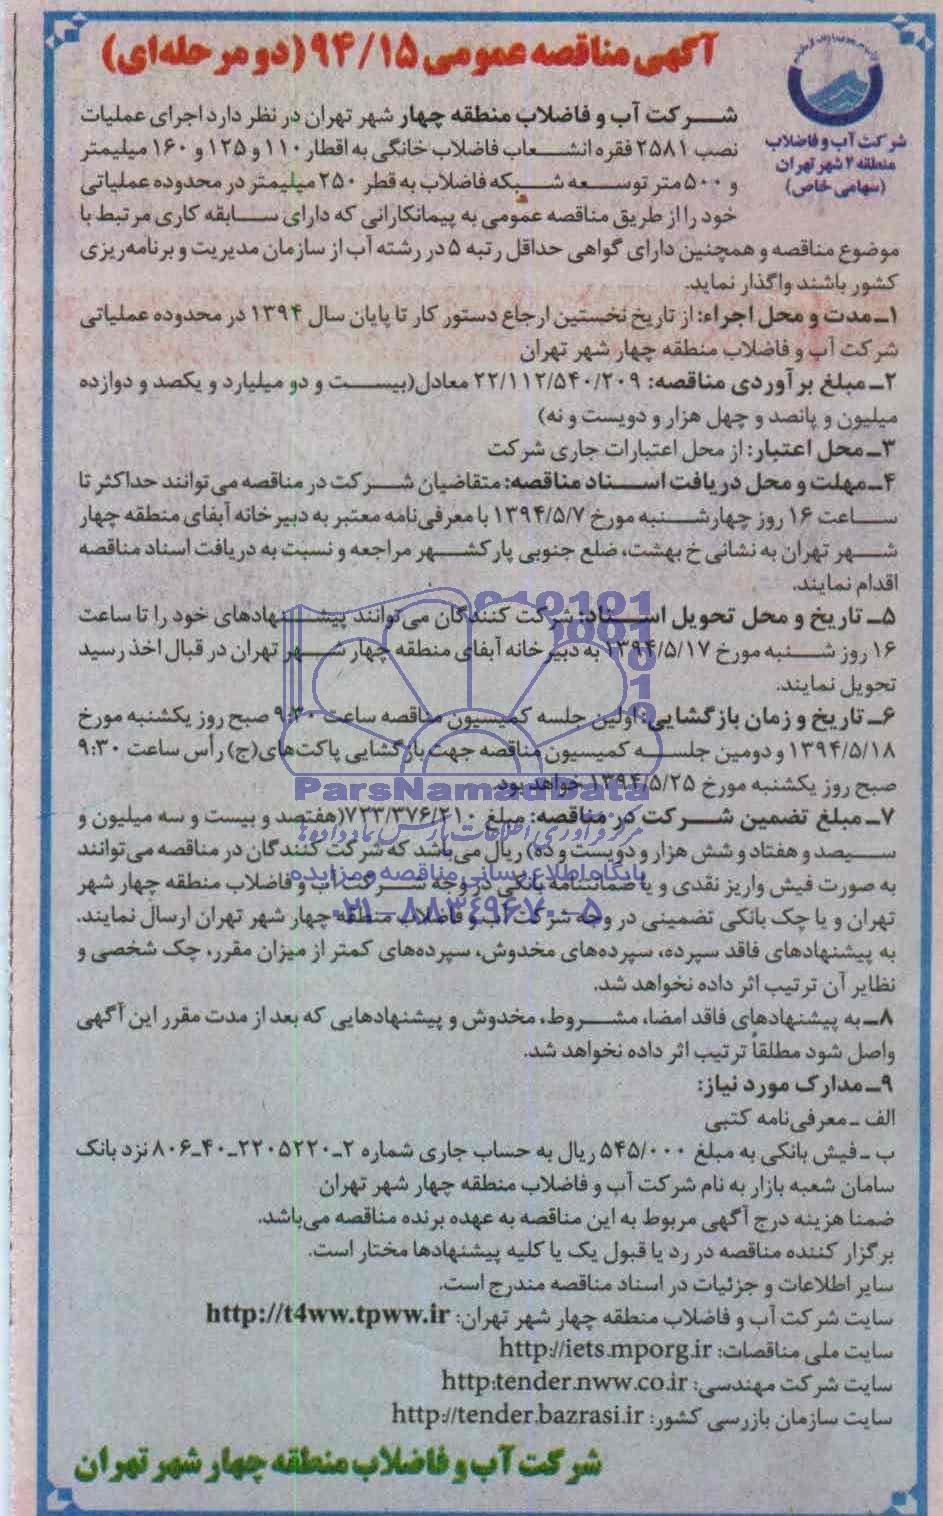 آگهی مناقصه عمومی ۹۴/۱۵ (دو مرحله‌ای)
شرکت آب و فاضلاب
منطقه ۴ شهر تهران
(سهامی خاص)
شرکت آب و فاضلاب منطقه چهار شهر تهران در نظر دارد اجرای عملیات
نصب ۲۵۸۱ فقره انشعاب فاضلاب خانگی به اقطار ۱۱۰ و ۱۲۵ و ۱۶۰ میلیمتر
و ۵۰۰ متر توسعه شبکه فاضلاب به قطر ۲۵۰ میلیمتر در محدوده عملیاتی
خود را از طریق مناقصه عمومی به پیمانکارانی که دارای سابقه کاری مرتبط با
موضوع مناقصه و همچنین دارای گواهی حداقل رتبه ۵ در رشته آب از سازمان مدیریت و برنامه‌ریزی
کشور باشند واگذار نماید.
۱ـ مدت و محل اجراء: از تاریخ نخستین ارجاع دستور کار تا پایان سال ۱۳۹۴ در محدوده عملیاتی
شرکت آب و فاضلاب منطقه چهار شهر تهران
۲ـ مبلغ برآوردی مناقصه: ۲۲/۱۱۲/۵۴۰/۲۰۹ معادل(بیست و دو میلیارد و یکصد و دوازده
میلیون و پانصد و چهل هزار و دویست و نه)
۳ـ محل اعتبار: از محل اعتبارات جاری شرکت
۴ـ مهلت و محل دریافت اسناد مناقصه: متقاضیان شرکت در مناقصه می‌توانند حداکثر تا
ساعت ۱۶ روز چهارشنبه مورخ ۱۳۹۴/۵/۷ با معرفی‌نامه معتبر به دبیرخانه آبفای منطقه چهار
شهر تهران به نشانی خ بهشت، ضلع جنوبی پارکشهر مراجعه و نسبت به دریافت اسناد مناقصه
اقدام نمایند.
۵ـ تاریخ و محل تحویل اسناد: شرکت کنندگان می‌توانند پیشنهادهای خود را تا ساعت
۱۶ روز شنبه مورخ ۱۳۹۴/۵/۱۷ به دبیرخانه آبفای منطقه چهار شهر تهران در قبال اخذ رسید
تحویل نمایند.
۶ـ تاریخ و زمان بازگشایی: اولین جلسه کمیسیون مناقصه ساعت ۹:۳۰ صبح روز یکشنبه مورخ
۱۳۹۴/۵/۱۸ و دومین جلسه کمیسیون مناقصه جهت بازگشایی پاکت‌های(ج) رأس ساعت ۹:۳۰
صبح روز یکشنبه مورخ ۱۳۹۴/۵/۲۵ خواهد بود.
ParsNamadData
۷ـ مبلغ تضمین شرکت در مناقصه: مبلغ ۷۲۳/۳۷۶/۲۱۰(هفتصد و بیست و سه میلیون و
مرکز فرآوری اطلاعات پارس نماد داده‌ها
سیصد و هفتاد و شش هزار و دویست و ده) ریال می‌باشد که شرکت کنندگان در مناقصه می‌توانند
پایگاه اطلاع رسانی مناقصه و مزایده
به صورت فیش واریز نقدی و یا ضمانتنامه بانکی در وجه شرکت آب و فاضلاب منطقه چهار شهر
۰۲۱-۸۸۳۴۹۶۷۰-۵
تهران و یا چک بانکی تضمینی در وجه شرکت آب و فاضلاب منطقه چهار شهر تهران ارسال نمایند.
به پیشنهادهای فاقد سپرده، سپرده‌های مخدوش، سپرده‌های کمتر از میزان مقرر، چک شخصی و
نظایر آن ترتیب اثر داده نخواهد شد.
۸ـ به پیشنهادهای فاقد امضا، مشروط، مخدوش و پیشنهادهایی که بعد از مدت مقرر این آگهی
واصل شود مطلقاً ترتیب اثر داده نخواهد شد.
۹ـ مدارک مورد نیاز:
الف ـ معرفی‌نامه کتبی
ب ـ فیش بانکی به مبلغ ۵۴۵/۰۰۰ ریال به حساب جاری شماره ۲ـ۲۲۰۵۲۲۰ـ۴۰ـ۸۰۶ نزد بانک
سامان شعبه بازار به نام شرکت آب و فاضلاب منطقه چهار شهر تهران
ضمنا هزینه درج آگهی مربوط به این مناقصه به عهده برنده مناقصه می‌باشد.
برگزار کننده مناقصه در رد یا قبول یک یا کلیه پیشنهادها مختار است.
سایر اطلاعات و جزئیات در اسناد مناقصه مندرج است.
سایت شرکت آب و فاضلاب منطقه چهار شهر تهران: http://t4ww.tpww.ir
سایت ملی مناقصات: http://iets.mporg.ir
سایت شرکت مهندسی: http:tender.nww.co.ir
سایت سازمان بازرسی کشور: http://tender.bazrasi.ir
شرکت آب و فاضلاب منطقه چهار شهر تهران